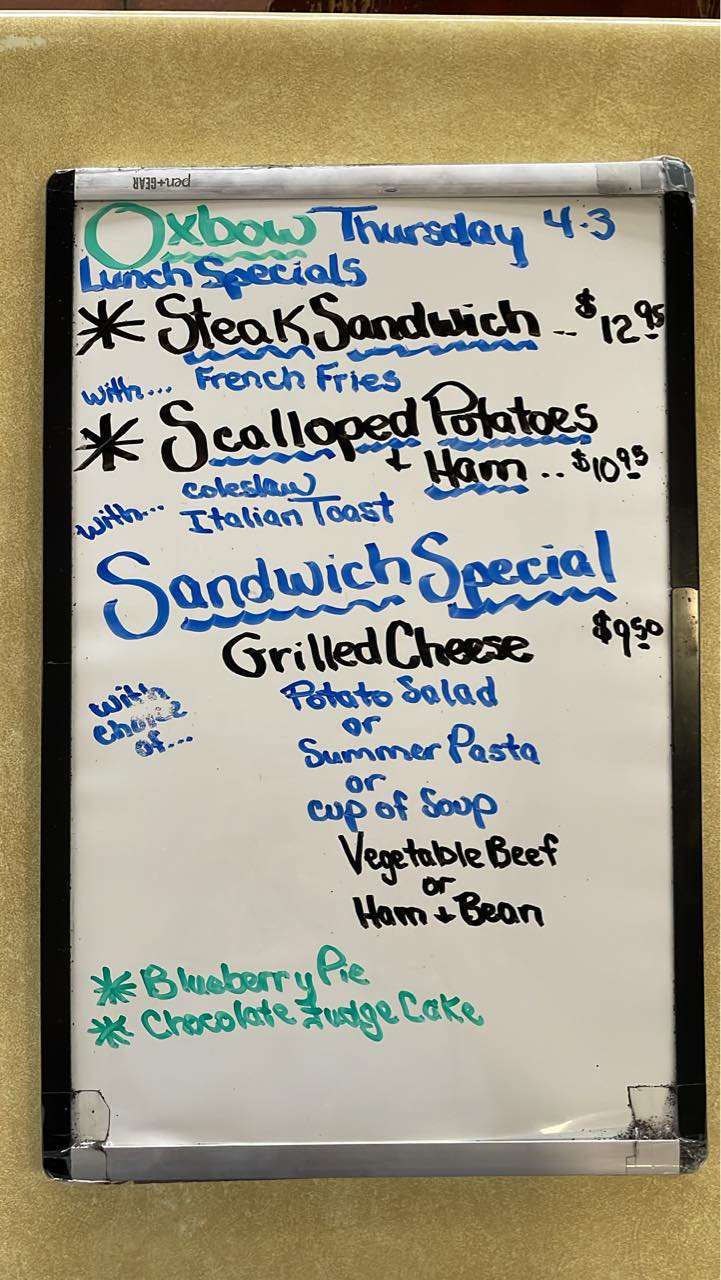 pen+GEAR
Oxbow Thursday 4.3
Lunch Specials
* Steak Sandwich -- $12.95
with... French Fries
* Scalloped Potatoes
+ Ham .. $10.95
with... coleslaw
Italian Toast
Sandwich Special
Grilled Cheese $9.50
with choice of... Potato Salad
or
Summer Pasta
or
cup of Soup
Vegetable Beef
or
Ham + Bean
* Blueberry Pie
* Chocolate Fudge Cake